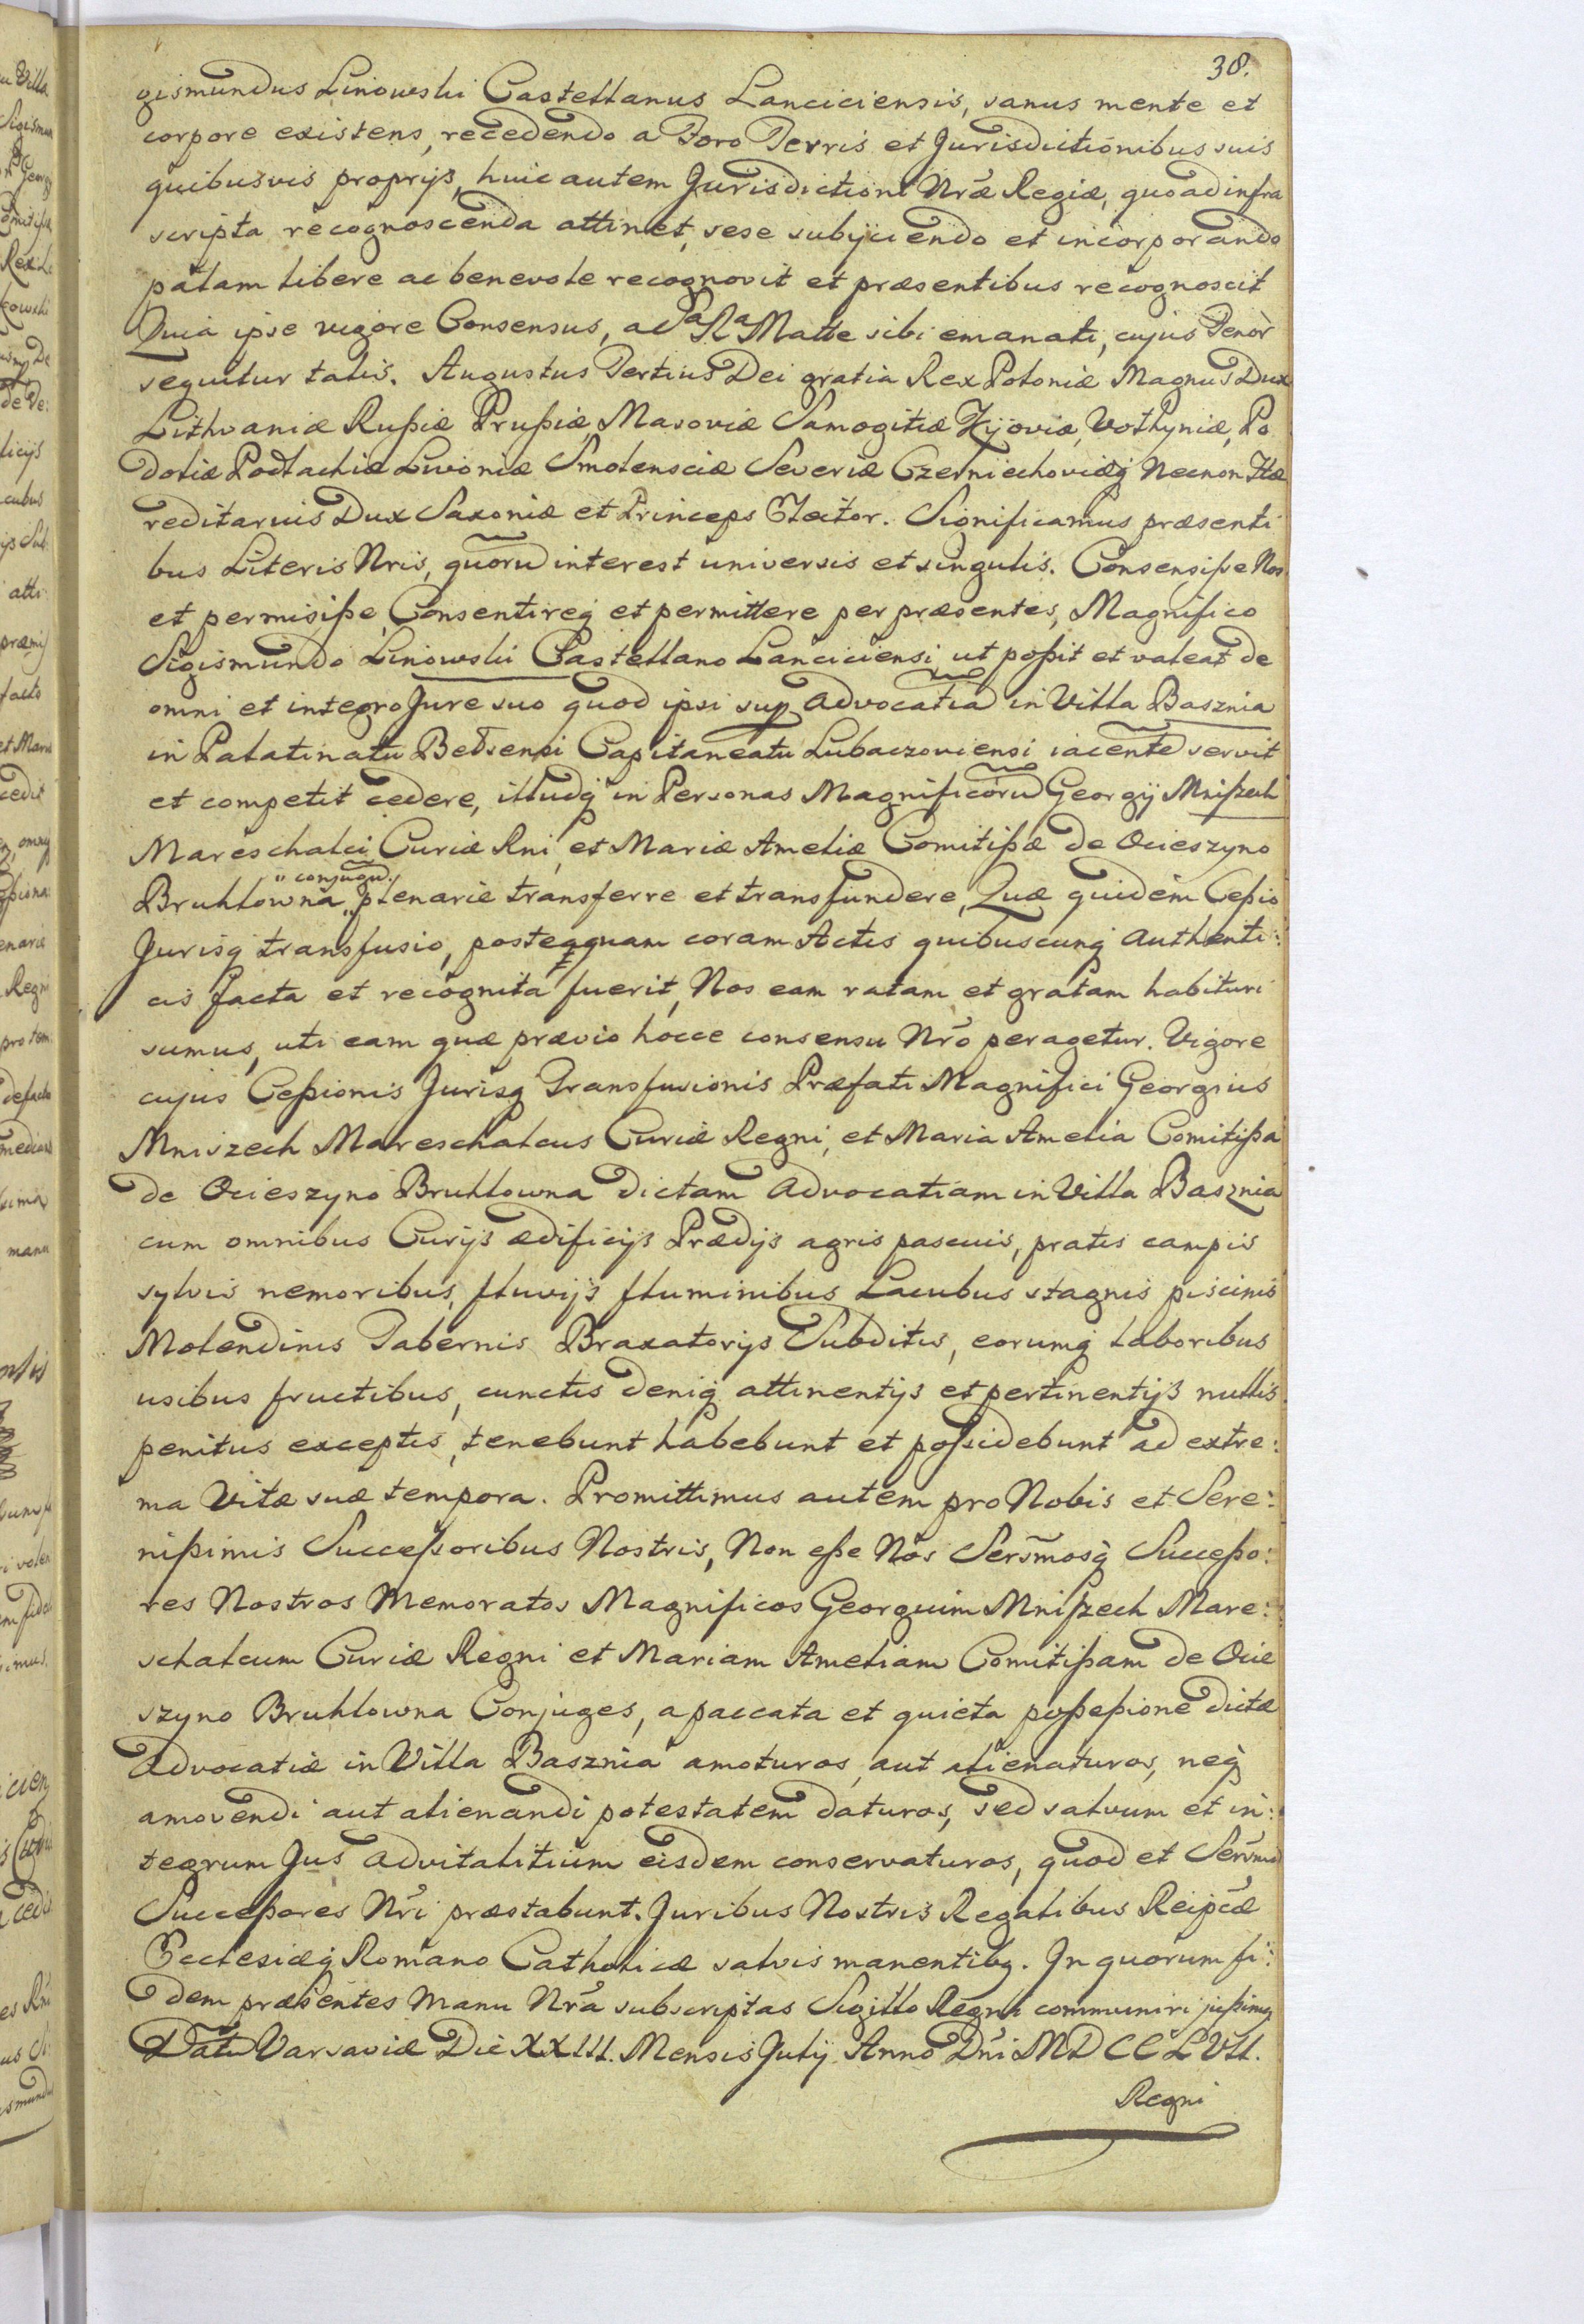 38.
gismundus Linowski Castellanus Lanciciensis, sanus mente et
corpore existens, recedendo a Foro Terris et Jurisdictionibus suis
quibusvis proprijs, huic autem Jurisdictioni Nræ Regiæ, quo ad infra
scripta recognoscenda attinet, sese subijciendo et incorporando
palam libere ac benevole recognovit et præsentibus recognoscit
Quia ipse vigore Consensus, a Sa Ra Matte sibi emanati, cujus Tenor
sequitur talis. Augustus Tertius Dei gratia Rex Poloniæ Magnus Dux
Lithvaniæ Rußiæ Prußiæ Masoviæ Samogitiæ Kijoviæ, Volhyniæ, Po
doliæ Podlachiæ Livoniæ Smolensciæ Severiæ Czerniechoviæq Necnon Hæ
reditarius Dux Saxoniæ et Princeps Elector. Significamus præsenti
bus Literis Nris, quorũ interest universis et singulis. Consensiße Nos
et permisiße, Consentireq et permittere per præsentes, Magnifico
Sigismundo Linowski Castellano Lanciciensi, ut poßit et valeat de
omni et integro Jure suo quod ipsi sup Advocatia in Villa Basznia
in Palatinatu Belzensi Capitaneatu Lubaczoviensi iacente servit
et competit cedere, illudq in Personas Magnificorũ Georgij Mniszech
Mareschalci Curiæ Rni, et Mariæ Ameliæ Comitißæ de Ocieszyno
" conjugũ
Bruhlowna " plenarie transferre et transfundere, Quæ quidem Ceßio
Jurisq transfusio, posteaquam coram Actis quibuscunq Authenti:
cis facta et recognita fuerit, Nos eam ratam et gratam habituri
sumus, uti eam quæ prævio hocce consensu Nro peragetur. Vigore
cujus Ceßionis Jurisq Transfusionis Præfati Magnifici Georgius
Mniszech Mareschalcus Curiæ Regni, et Maria Amelia Comitißa
de Ocieszyno Bruhlowna dictam Advocatiam in Villa Basznia
cum omnibus Curijs ædificijs Prædijs agris pascuis, pratis campis
sylvis nemoribus, fluvijs fluminibus Lacubus stagnis piscinis
Molendinis Tabernis Braxatorijs Subditis, eorumq laboribus
usibus fructibus, cunctis deniq attinentijs et pertinentijs nullis
penitus exceptis, tenebunt habebunt et poßidebunt ad extre:
ma Vitæ suæ tempora. Promittimus autem pro Nobis et Sere:
nißimis Succeßoribus Nostris, Non eße Nos Sersmosq Succeßo:
res Nostros Memoratos Magnificos Georgium Mniszech Mare:
schalcum Curiæ Regni et Mariam Ameliam Comitißam de Ocie
szyno Bruhlowna Conjuges, a paccata et quieta poßeßione dictæ
Advocatiæ in Villa Basznia amoturos, aut alienaturos, neq
amovendi aut alienandi potestatem daturos, sed salvum et in:
tegrum Jus advitalitium eisdem conservaturos, quod et Sersmi
Succeßores Nri præstabunt. Juribus Nostris Regalibus Reipcæ
Ecclesiæq Romano Catholicæ salvis manentibq. In quorum fi:
dem præsentes Manu Nra subscriptas Sigillo Regni communiri jußimq
Datũ Varsaviæ Die XXIII. Mensis Julij Anno Dni MDCCLVII.
Regni